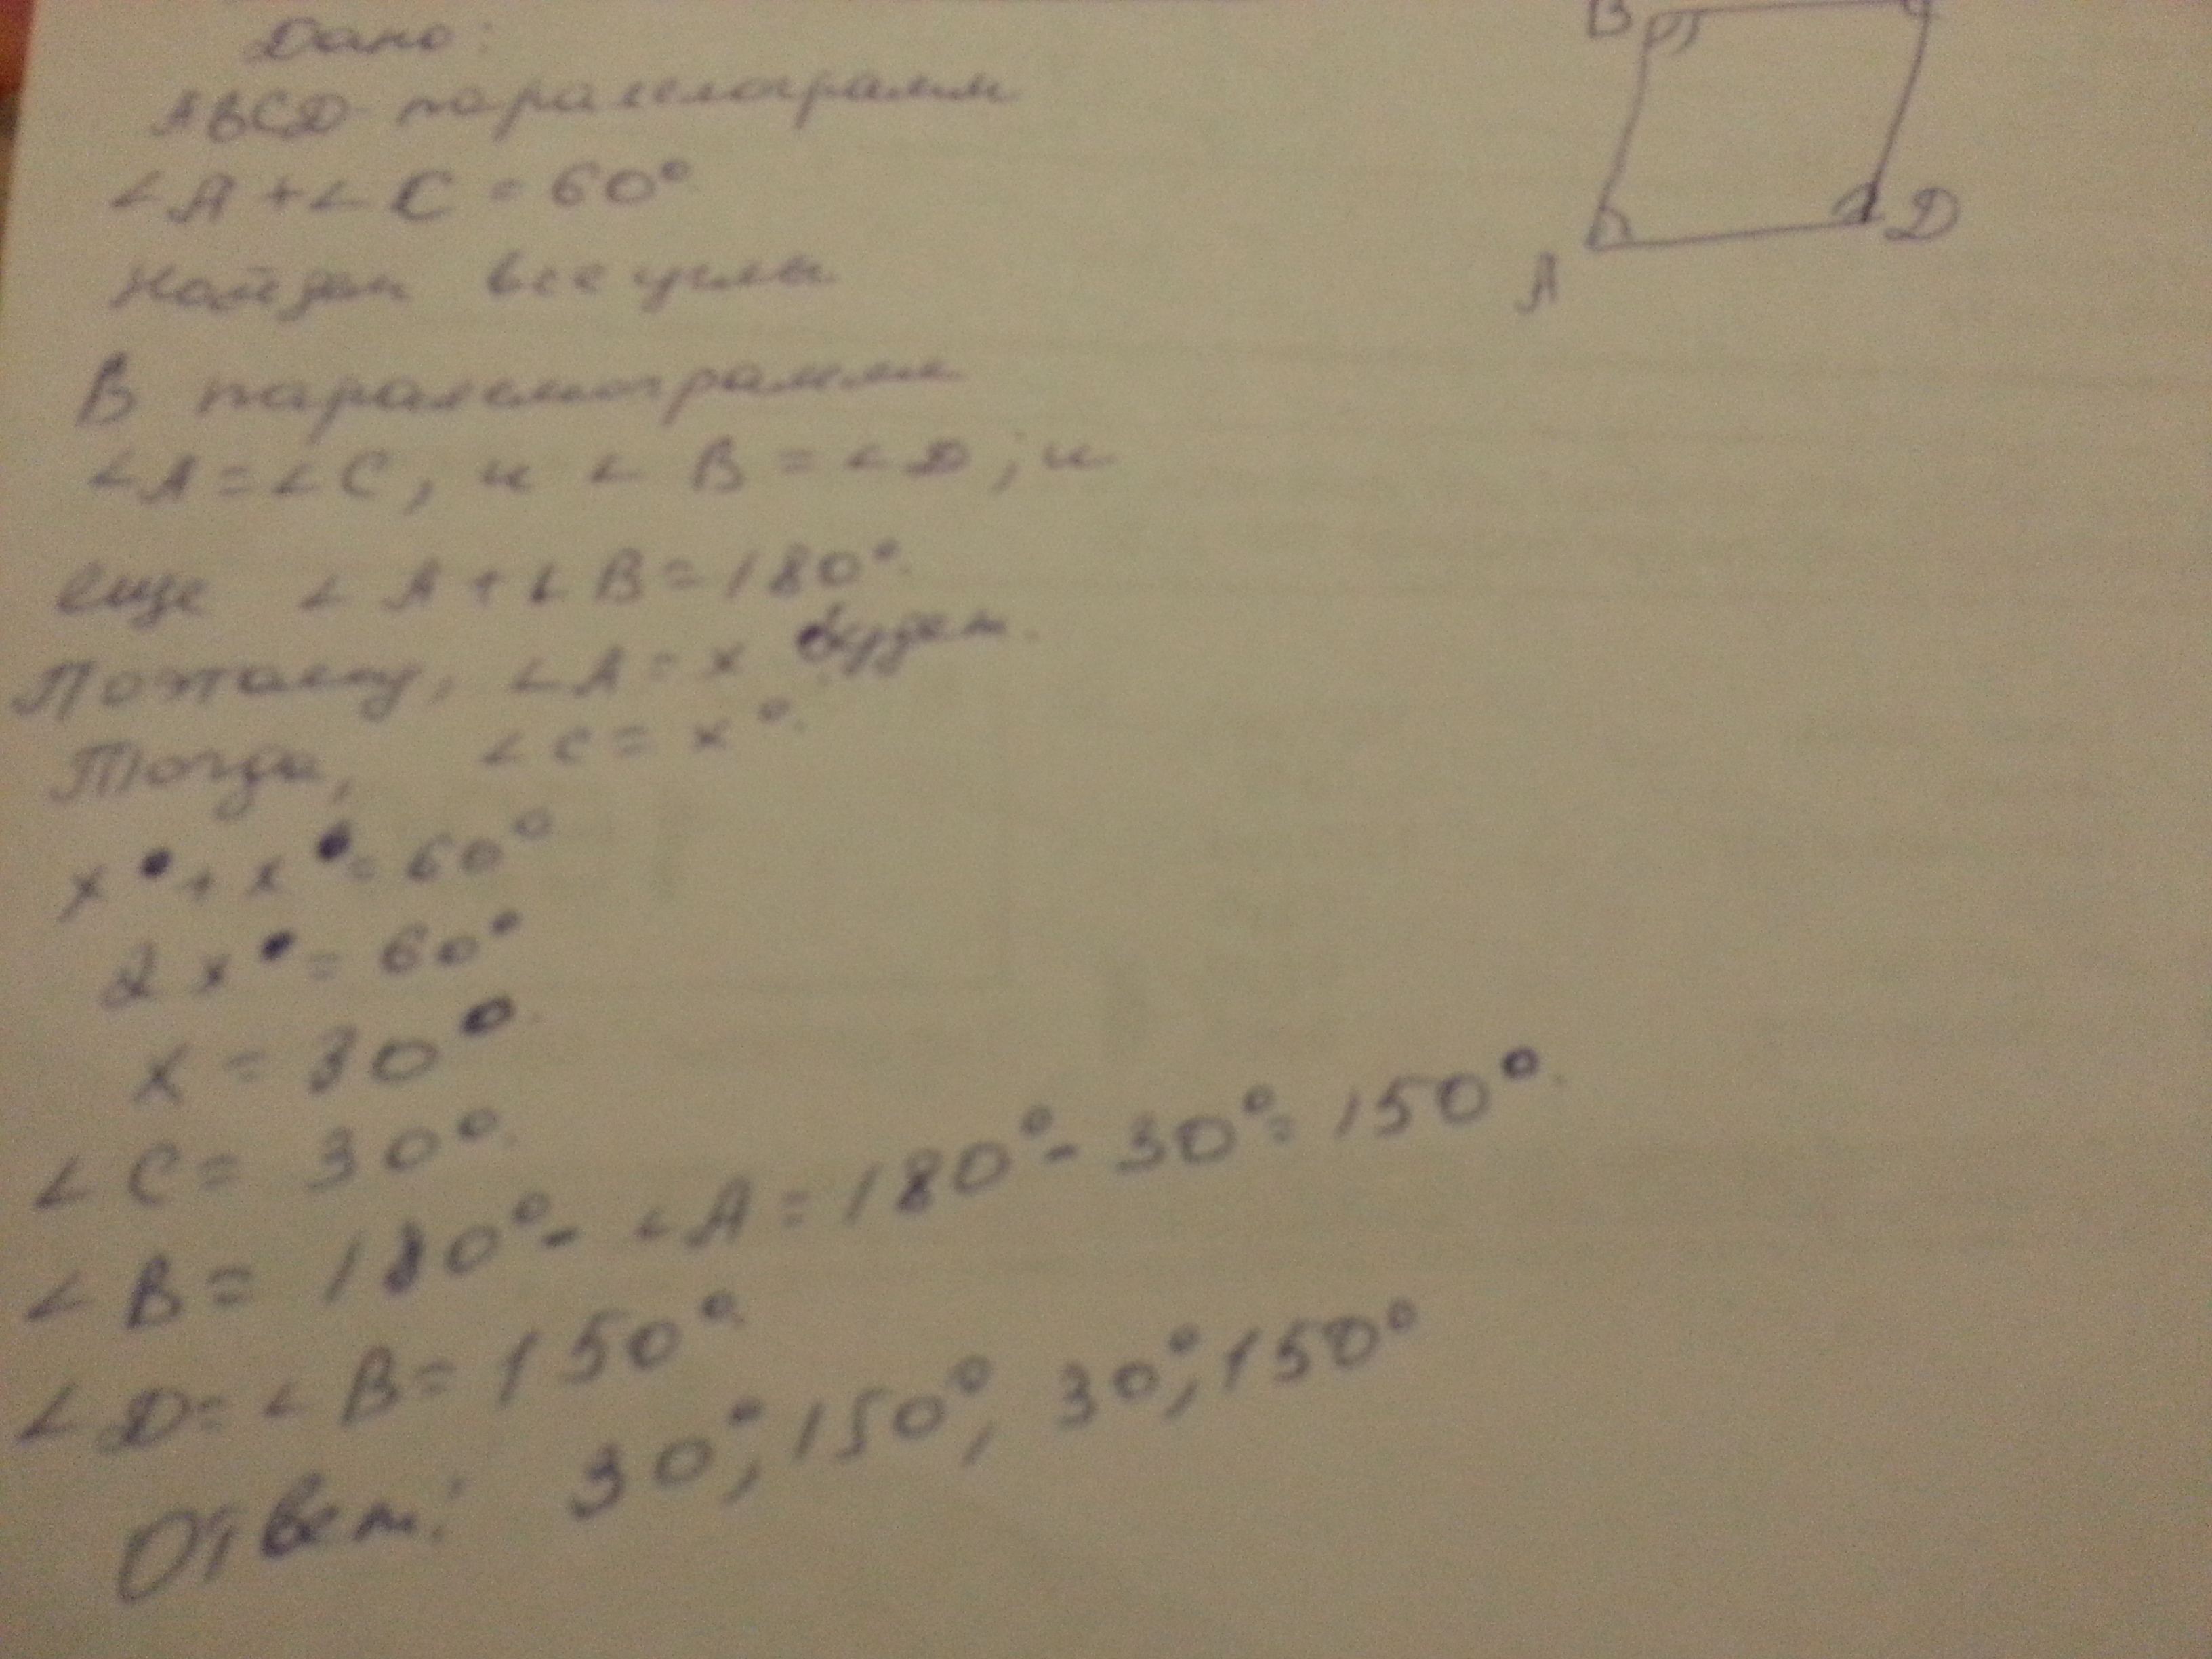 Дано:
ABCD - паралелограмм
∠A + ∠C = 60°
Найдем все углы
B
A
D
В паралелограмме
∠A = ∠C, и ∠B = ∠D; и
еще ∠A + ∠B = 180°.
Поэтому, ∠A = x будет.
Тогда, ∠C = x°.
x + x = 60°
2x = 60°
x = 30°.
∠C = 30°.
∠B = 180° - ∠A = 180° - 30° = 150°.
∠D = ∠B = 150°.
Ответ: 30°, 150°, 30°, 150°